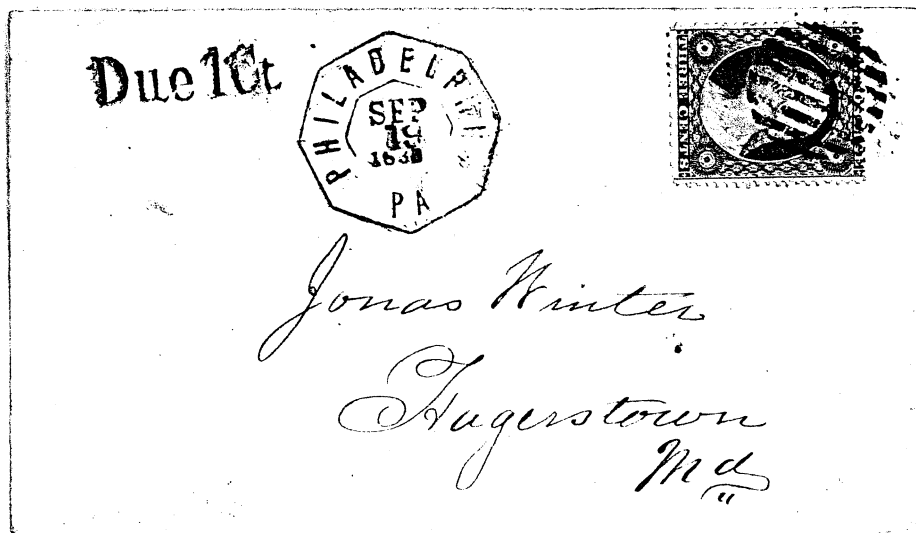 Due 1Ct
PHILADELPHIA
SEP
PA
THREE CENTS
Jonas Winter
Hagerstown
Md